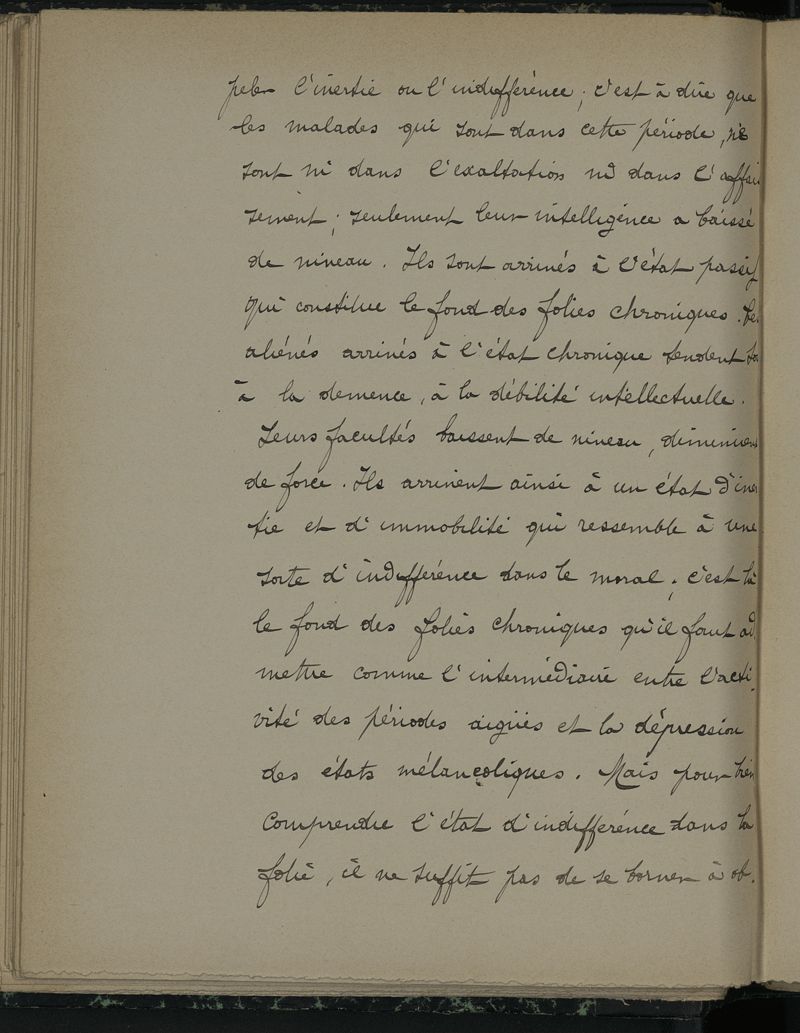 peler l'inertie ou l'indifférence ; c'est à dire que
les malades qui sont dans cette période, ne
sont ni dans l'exaltation ni dans l'affais
sement ; seulement leur intelligence a baissé
de niveau. Ils sont arrivés à l'état passif
qui constitue le fond des folies chroniques. Les
aliénés arrivés à l'état chronique tendent
à la demence, à la débilité intellectuelle.
Leurs facultés baissent de niveau, diminuent
de force. Ils arrivent ainsi à un état d'iner
tie et d'immobilité qui ressemble à une
sorte d'indifférence dans le moral ; c'est là
le fond des folies chroniques qu'il faut ad
mettre comme l'intermédiaire entre l'acti
vité des périodes aigües et la dépression
des états mélancoliques. Mais pour bien
comprendre l'état d'indifférence dans la
folie, il ne suffit pas de se borner à ob.